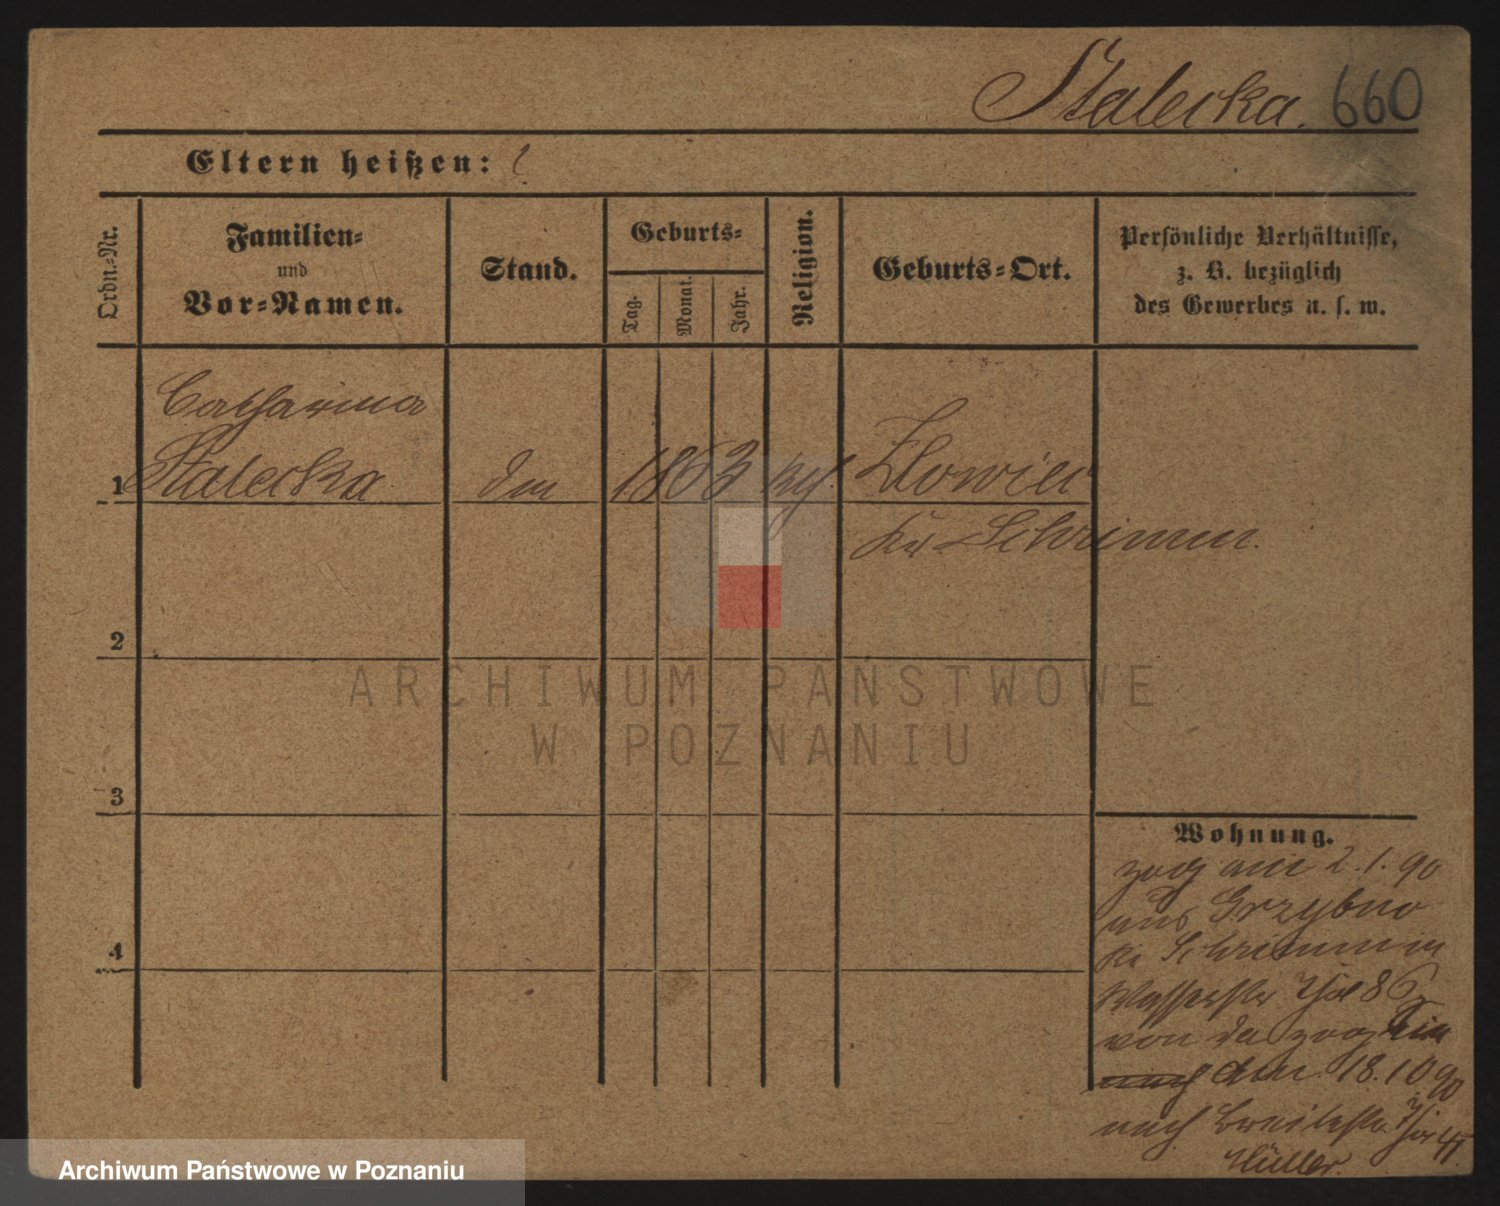 Stalecka. 660
Eltern heißen:
Ordn.-Nr.
Familien-
und
Vor-Namen.
Stand.
Geburts-
Tag.
Monat.
Jahr.
Religion.
Geburts-Ort.
Persönliche Verhältnisse,
z. B. bezüglich
des Gewerbes u. s. w.
Catharina
1 Stalecka 1863 Zlowiec
Kr. Schrimm.
2
3
4
Wohnung.
zog am 2.1.90
aus Grzybno
Kr Schrimm in
Wasserstr 86
von da zog
nach am 18.10 90
nach Breitestr
Müller.
ARCHIWUM PAŃSTWOWE
W POZNANIU
Archiwum Państwowe w Poznaniu